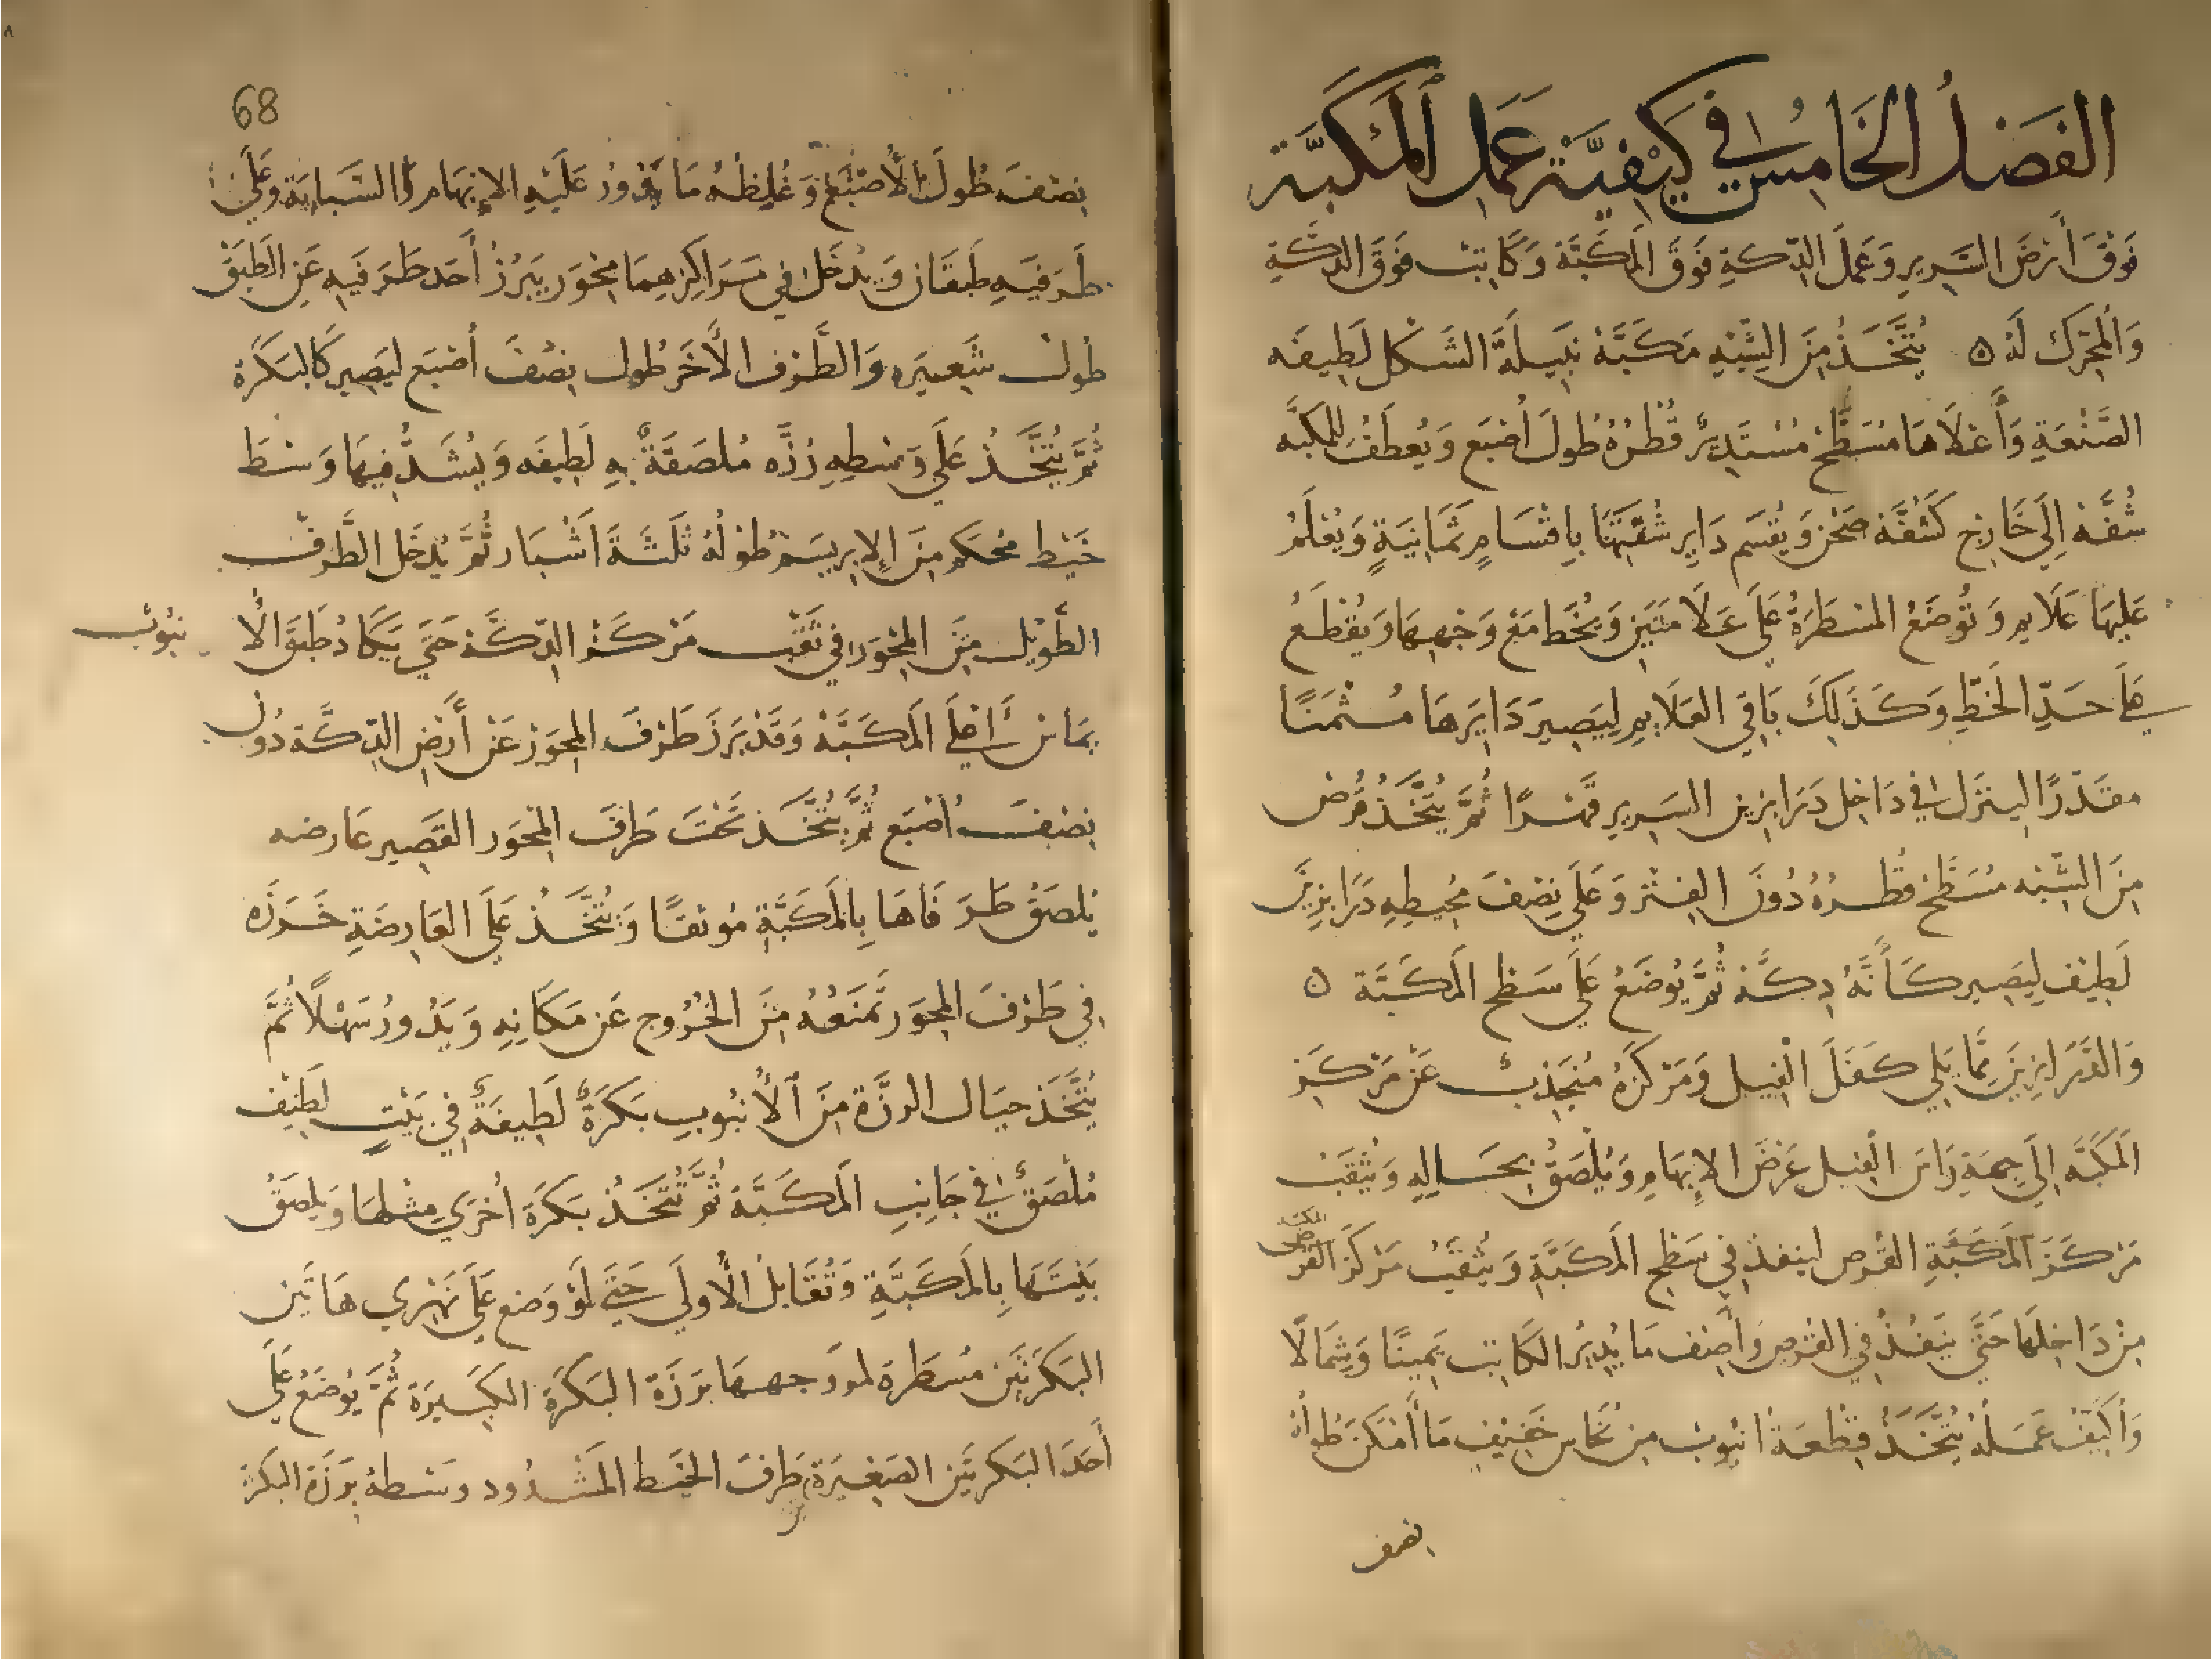 الفَصْلُ الخَامِسُ في كَيْفيَّة عَمَل اَلمَكَبَّة
فَوْقَ أَرْضَ السَّرِيرِ وَعَمَلَ الدِّكةِ فَوْقَ المَكَبَّة وَكَاتِبْ فَوقَ الدكَّةِ
وَالمُحَرِّكِ لَهُ ٥ يُتَّخَذُ مِنَ الشِّبْهِ مَكَبَّة نَبِيلَةَ الشَكل لَطِيفَه
الصَّنْعَةِ وَأَعْلَاهَا مُسَطَّحْ مُسْتَدِيْرٌ قُطْرُهُ طُولَ أَصْبَع وَيُعطَفُ للمكبّه
شفَّة إِلَى خَارِج كَشَفَّة صَحْن وَيُقسَم دَاير شفَّتهَا بِاقسَامٍ ثَمَانِيَةٍ وَيُعْلَمُ
عَلَيهَا عَلَايم وَتُوضَعُ المسطَرَةُ عَلَى عَلَامَتَين وَيُخَط مَعَ وَجْهِهَا وَيُقطَعُ
عَلَى حَدِّ الخَطِّ وَكَذَلِكَ بَاقي العَلَايم لِيَصِيرَ دَايرَهَا مُثْمَنًا
مقَدرًا لينزَل في دَاخل دَرَابزين السَرير قسْرًا ثُمَّ يُتَّخَذُ قُرْض
مِنَ الشّبه مُسَطَّح قُطْرُهُ دُونَ الفِتْر وَعَلَى نِصْفَ مُحِيطِهِ دَرَابزِيْن
لَطِيْف لِيَصِير كَأَنَّهُ دِكَّة ثُمَّ يُوضَعُ عَلَى سَطح المَكَبَّة ٥
وَالدَّرَابزِيْنَ مِمَّا يَلي كَفَلَ الفِيل وَمَرْكَزَهُ مُنجَذِبْ عَنْ مَرْكَز
المَكَبَّه إِلَى جِهَةِ رَاسَ الفِيل عَرْضَ الإِبْهَامِ وَيُلصَقُ بِحَالِهِ وَيُثقَبُ
مَرْكَزَ المَكَبَّةِ القُرص لينفذ في سَطح المَكَبَّةِ وَيُثقَبُ مَرْكَزَ القُرْص
مِنْ دَاخِلهَا حَتَّى يَنفُذُ في القُرص وَأَصِف مَا يُدِيْرُ الكَاتِب يَمِينًا وَشِمَالًا
وَكَيْفَ عَمَلهُ يُتَّخَذُ قِطْعَةُ انبُوبْ مِن نُحَاسٍ خَفِيْفٍ مَا أَمْكَنَ طُولُهُ
نصف
68
نِصْفَ طُولَ الأَصْبَعِ وَغلظهُ مَا يَدُورُ عَلَيْهِ الإِبْهَام وَالسَّبابَة وَعَلَى
طَرَفَيهِ طَبَقَان وَيُدْخَلُ في مَرَاكِزهِمَا مِحْوَر يَبْرُزُ أَحَد طَرَفَيهِ عَنِ الطَبَق
طُولْ شَعِيرَه وَالطَّرْف الأَخَر طُول نِصْفَ أصْبَع ليَصِير كَالبَكَرَة
ثُمَّ يُتَّخَذُ عَلَى وَسْطِهِ رزَّه مُلصَقَةٌ بِهِ لَطِيفَه وَيُشَدُّ فِيهَا وَسْط
خَيْط مُحكَم مِنَ الإبرِيسَم طُوْلهُ ثَلَثَةَ اَشْبَار ثُمَّ يُدخَل الطَّرَف
الطَوْيل مِنَ المِحْوَر في ثَقْب مَرْكَزْ الدّكَّة حَتَى يَكَادُ طَبَقَ الأ
نبُوبْ
يمَاسّ أَعْلَى المَكَبَّة وَقَدْ بَرَزَ طَرْفَ المِحْوَر عَنْ أَرْضِ الدِّكَّة دُوْنَ
نِصْفَ أصْبَع ثُمَّ يُتَّخَذ تَحْتَ طَرفَ المحْوَر القَصِير عَارضه
يُلصَقُ طَرَفَاهَا بِالمَكَبَّةِ مُوثقًا وَيُتَّخَذُ عَلَى العَارِضَةِ خَرَزَه
في طَرْفَ المِحوَر تَمنَعُهُ مِنَ الخُرُوج عَن مَكَانِهِ وَيَدُورُ سَهْلًا ثُمَّ
يُتَّخَذ حِيَال الرزَّة مِنَ الأَنبُوبِ بَكَرَةٌ لَطِيفَةٌ في بَيْتٍ لَطِيْف
مُلْصَقٌ في جَانِبِ المَكَبَّة ثُمَّ تُتخَذُ بَكَرَة أُخرَى مِثْلهَا وَيلصَقُ
بَيْتَهَا بِالمَكَبَّةِ وَتُقَابلُ الأُولَى حَتَّى لَوْ وَضع عَلَى نَهْرَي هَاتَين
البَكَرَتَين مُسَطرة لمر وَجههَا برَزة البَكَرَة الكَبيرَة ثُمَّ يُوضَعُ عَلَى
أَحَدَ البَكرتَين الصَغِيرَة طَرفَ الخَيط المَشدُود وسَطهُ بِرَزَة البَكَرَة